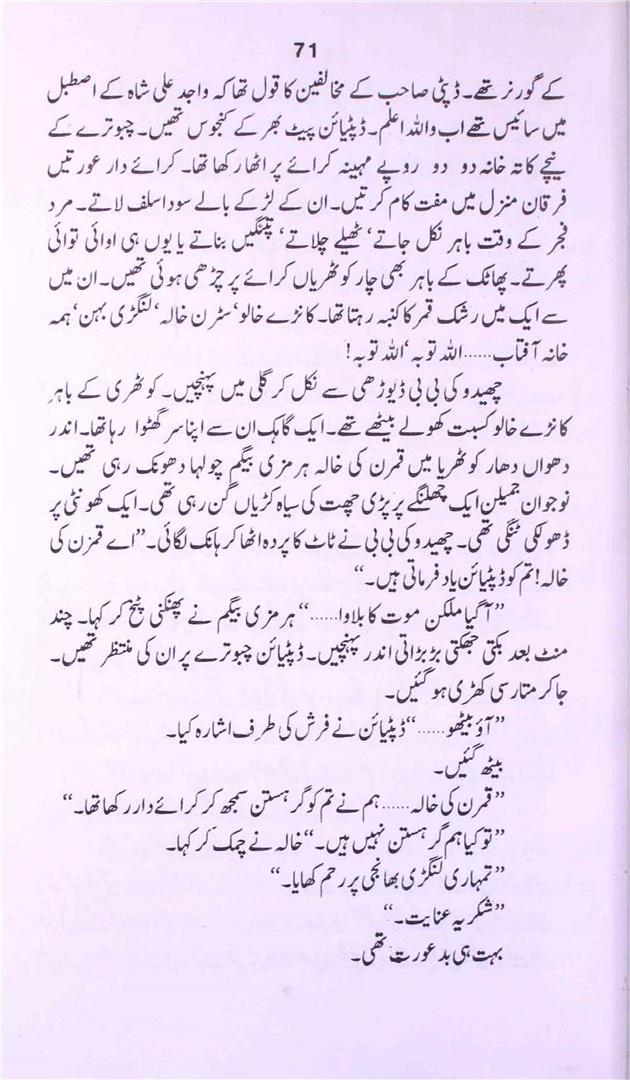 71
کے گورنر تھے۔ ڈپٹی صاحب کے مخالفین کا قول تھا کہ واجد علی شاہ کے اصطبل
میں سائیس تھے اب واللہ اعلم۔ ڈپٹیائن پیٹ بھر کے کنجوس تھیں۔ چبوترے کے
نیچے کا تہ خانہ دو دو روپے مہینہ کرائے پر اٹھا رکھا تھا۔ کرائے دار عورتیں
فرقان منزل میں مفت کام کرتیں۔ ان کے لڑکے بالے سودا سلف لاتے۔ مرد
فجر کے وقت باہر نکل جاتے‘ ٹھیلے چلاتے‘ پتنگیں بناتے یا یوں ہی اوائی توائی
پھرتے۔ پھاٹک کے باہر بھی چار کوٹھریاں کرائے پر چڑھی ہوئی تھیں۔ ان میں
سے ایک میں رشک قمر کا کنبہ رہتا تھا۔ کانڑے خالو‘ سٹرن خالہ‘ لنگڑی بہن‘ ہمہ
خانہ آفتاب...... اللہ توبہ‘ اللہ توبہ!
چھیدو کی بی بی ڈیوڑھی سے نکل کر گلی میں پہنچیں۔ کوٹھری کے باہر
کانڑے خالو کسبت کھولے بیٹھے تھے۔ ایک گاہک ان سے اپنا سر گھٹوا رہا تھا۔ اندر
دھواں دھار کوٹھریا میں قمرن کی خالہ ہرمزی بیگم چولہا دھونک رہی تھیں۔
نوجوان جمیلن ایک چھلنگے پر پڑی چھت کی سیاہ کڑیاں گن رہی تھی۔ ایک کھونٹی پر
ڈھولکی ٹنگی تھی۔ چھیدو کی بی بی نے ٹاٹ کا پردہ اٹھا کر ہانک لگائی۔ ”اے قمرن کی
خالہ! تم کو ڈپٹیائن یاد فرماتی ہیں۔“
”آ گیا ملکن موت کا بلاوا......“ ہرمزی بیگم نے پھنکنی پٹخ کر کہا۔ چند
منٹ بعد بکتی جھکتی بڑبڑاتی اندر پہنچیں۔ ڈپٹیائن چبوترے پر ان کی منتظر تھیں۔
جا کر متارسی کھڑی ہو گئیں۔
”آؤ بیٹھو......“ ڈپٹیائن نے فرش کی طرف اشارہ کیا۔
بیٹھ گئیں۔
”قمرن کی خالہ...... ہم نے تم کو گرہستن سمجھ کر کرائے دار رکھا تھا۔“
”تو کیا ہم گرہستن نہیں ہیں۔“ خالہ نے چمک کر کہا۔
”تمہاری لنگڑی بھانجی پر رحم کھایا۔“
”شکریہ عنایت۔“
بہت ہی بد عورت تھی۔